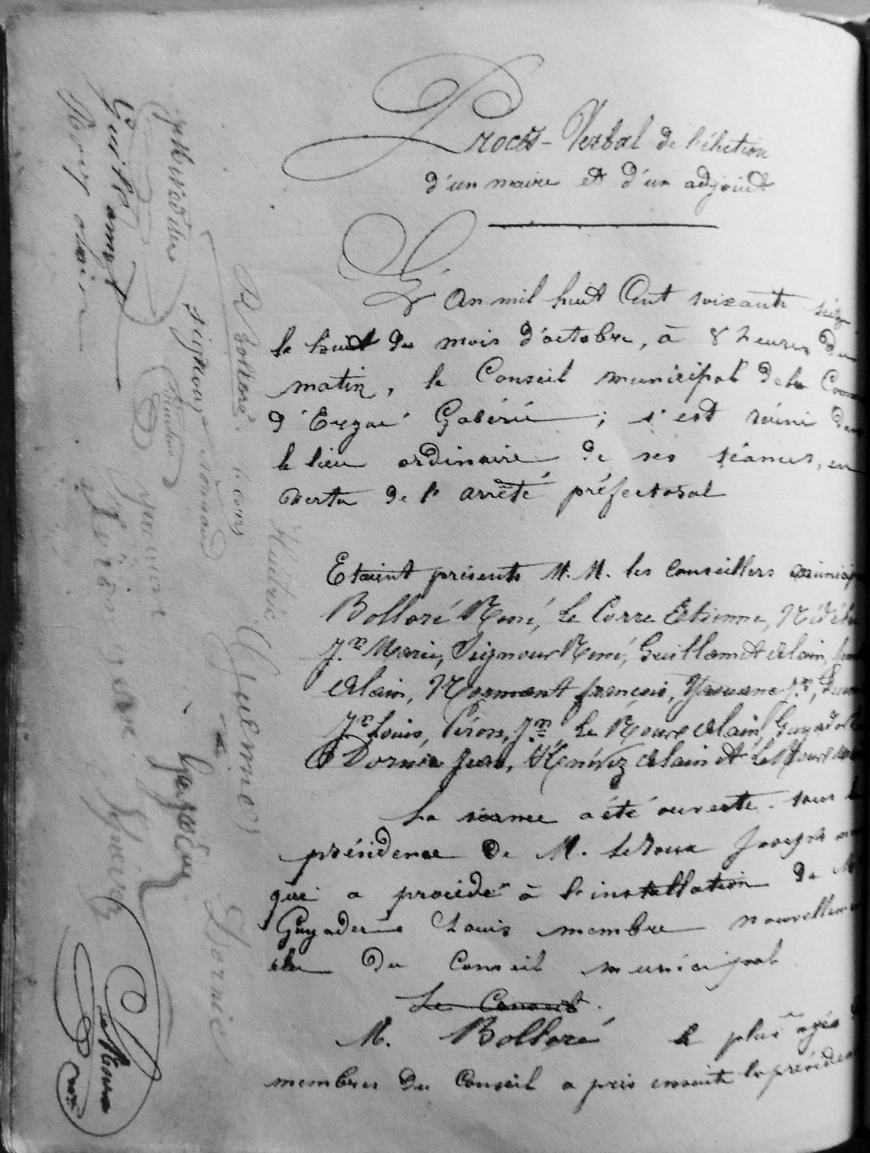 Procès-Verbal de l'élection
d'un maire et d'un adjoint
L'An mil huit Cent soixante seize
le huit du mois d'octobre, à 8 heures du
matin, le Conseil municipal de la Com
d'Ergué Gabéric ; s'est réuni dans
le lieu ordinaire de ses séances, en
vertu de l'arrêté préfectoral
Etaient présents M.M. les Conseillers municip
Bolloré René, Le Corre Etienne, Nédélec
Jn Marie, Signour René, Guillamet Alain,
Alain, Normant françois, Yaouanc Jn,
Jn Louis, Piron, Jn Le Roux Alain, Guyader
Dornic Jean, Kénévez Alain et Le Roux
La séance a été ouverte sous la
présidence de M. Le Roux Joseph
qui a procédé à l'installation de M
Guyader Louis membre nouvellement
élu du Conseil municipal
Le Conseil
M. Bolloré le plus agé
membres du Conseil a pris ensuite la présiden
Rouz alain
Guillamet
Signour
R Bolloré
le corre
Huitric
Dornic
Le Roux